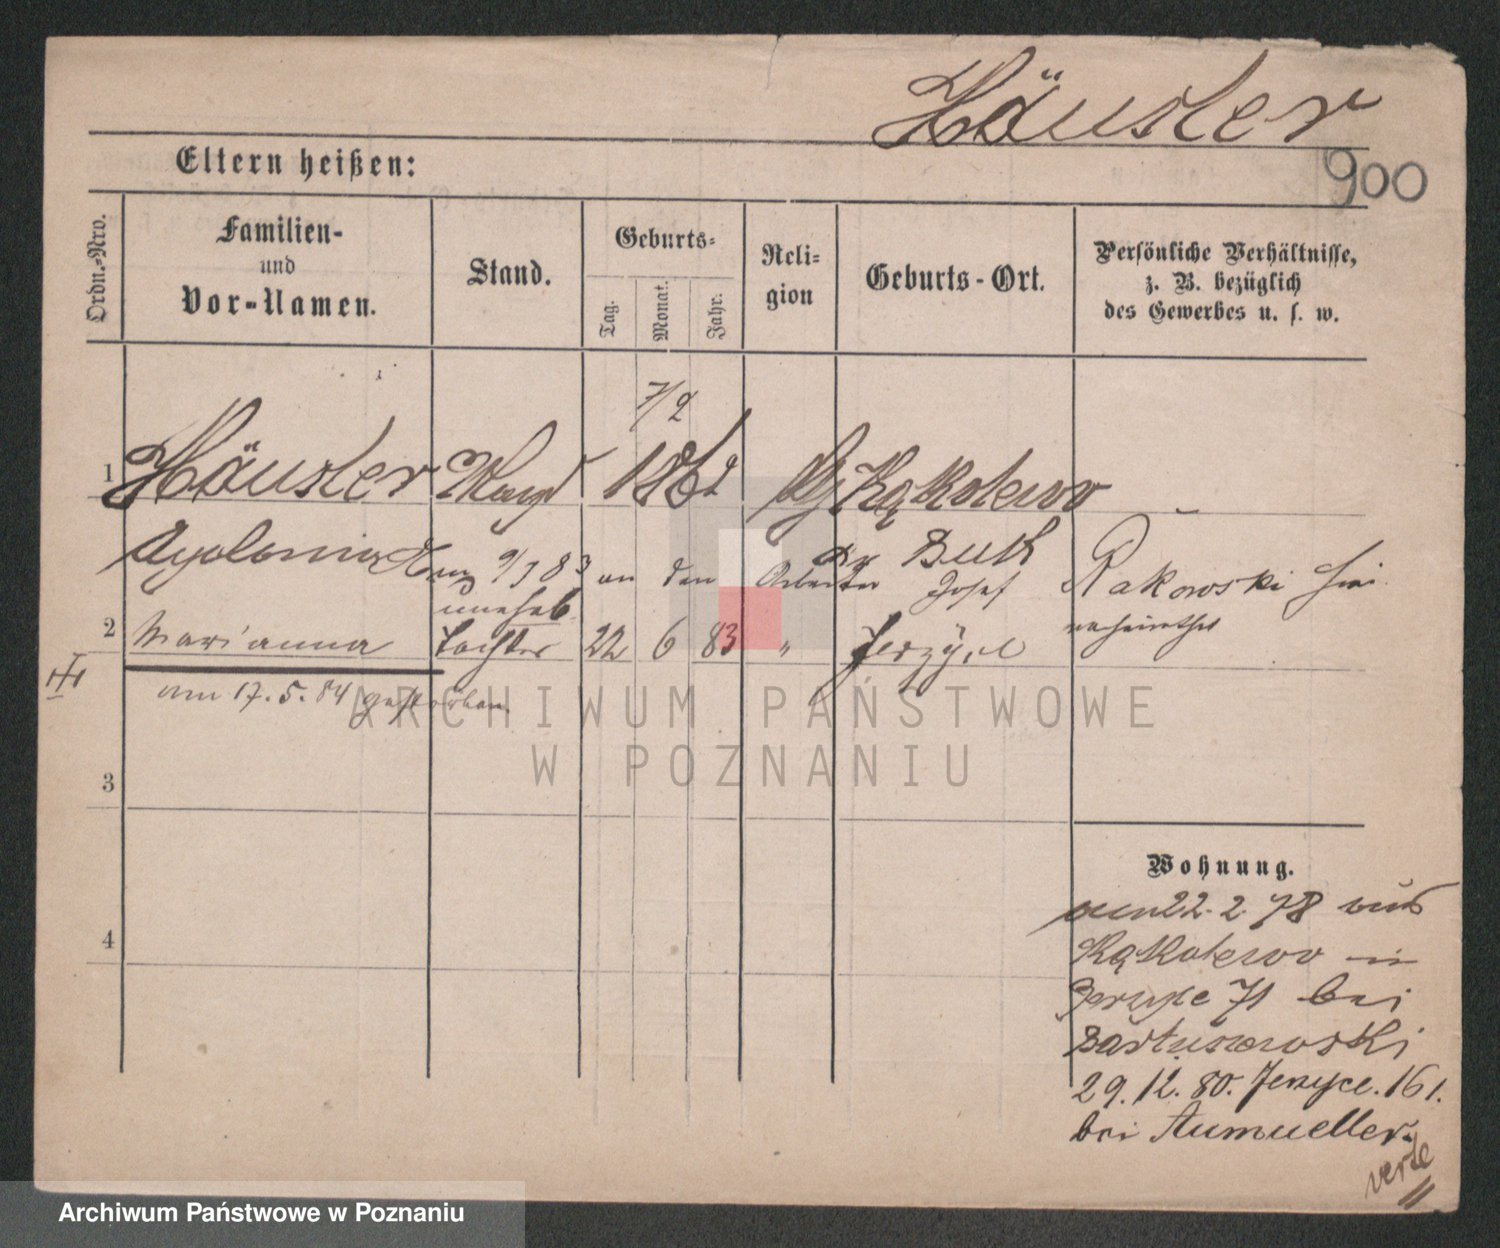 Häusler
900
Eltern heißen:
Ordn.-Nro.
Familien-
und
Vor-Namen.
Stand.
Geburts-
Tag.
Monat.
Jahr.
Reli-
gion
Geburts-Ort.
Persönliche Verhältnisse,
z. B. bezüglich
des Gewerbes u. s. w.
7/2
1 Häusler Magd 1862 Kąkolewo
Apolonia 9/7 83 an den Arbeiter Josef Rakowski hier
unehel verheirathet
2 Marianna Tochter 22 6 83 "
am 17. 5. 84 gestorben
3
4
Wohnung.
am 22. 2. 78 aus
Kąkolewo in
Jerzyce 71 bei
Bartuszewski
29. 12. 80. Jerzyce. 161.
bei Aumueller.
verte
ARCHIWUM PAŃSTWOWE
W POZNANIU
Archiwum Państwowe w Poznaniu